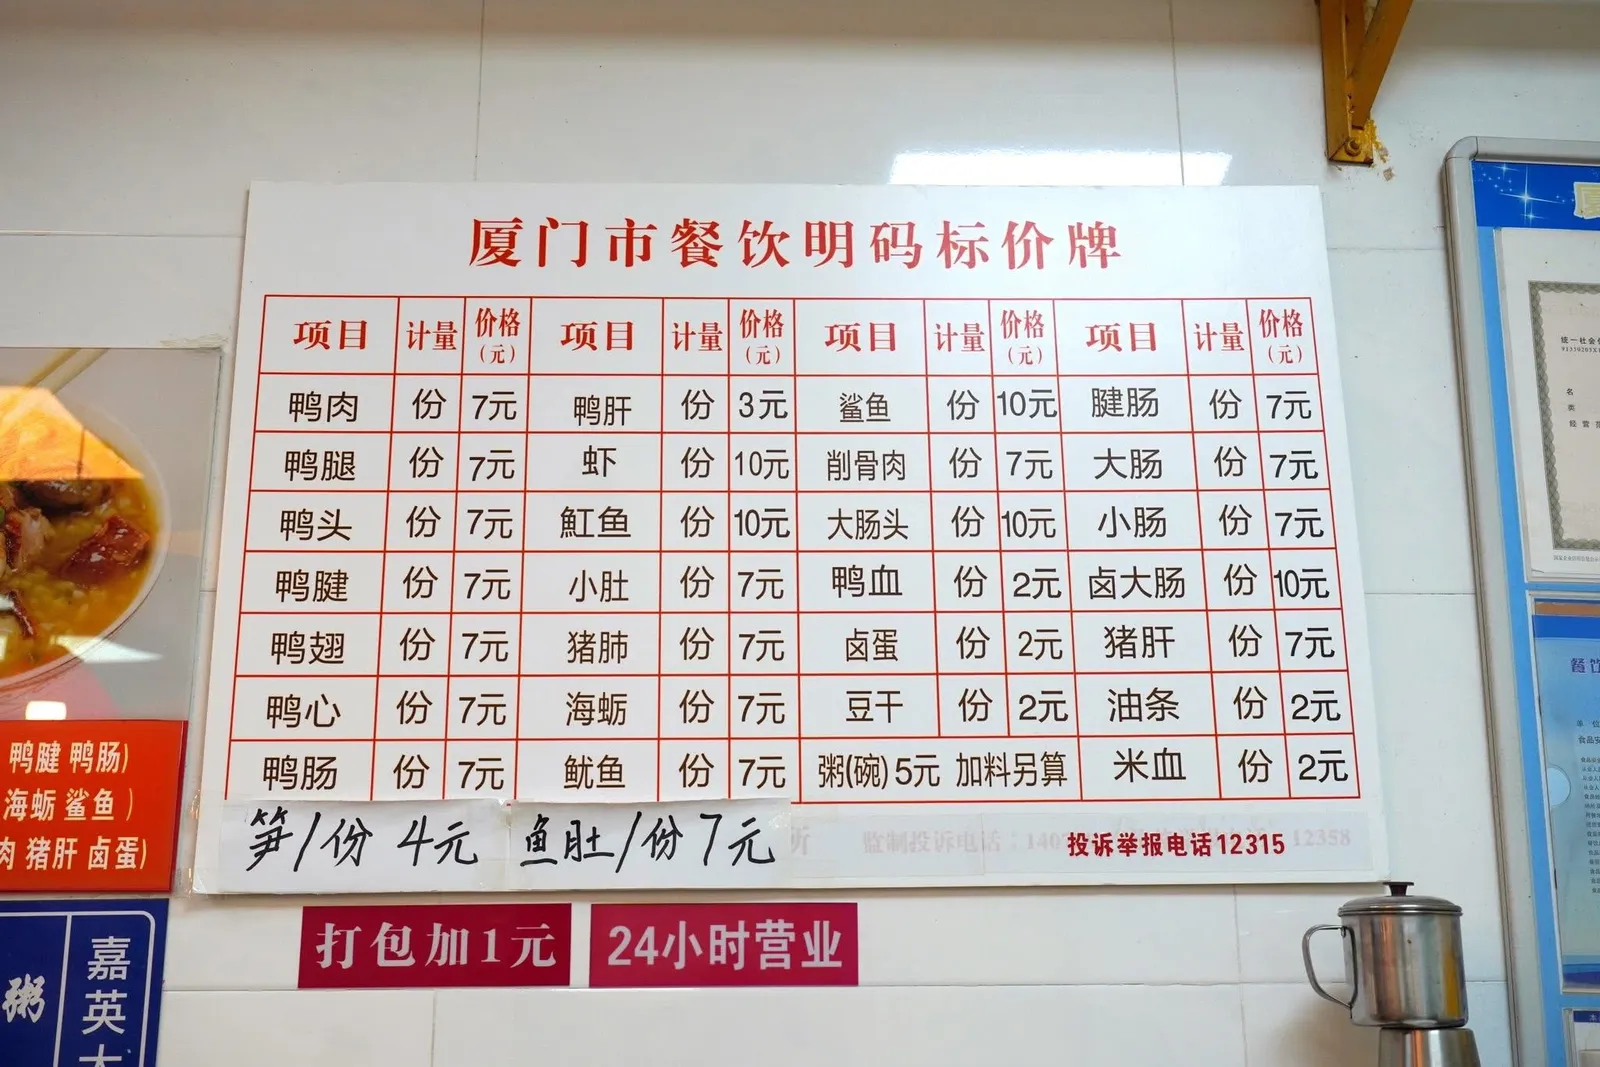 厦门市餐饮明码标价牌
项目 计量 价格(元) 项目 计量 价格(元) 项目 计量 价格(元) 项目 计量 价格(元)
鸭肉 份 7元 鸭肝 份 3元 鲨鱼 份 10元 腱肠 份 7元
鸭腿 份 7元 虾 份 10元 削骨肉 份 7元 大肠 份 7元
鸭头 份 7元 魟鱼 份 10元 大肠头 份 10元 小肠 份 7元
鸭腱 份 7元 小肚 份 7元 鸭血 份 2元 卤大肠 份 10元
鸭翅 份 7元 猪肺 份 7元 卤蛋 份 2元 猪肝 份 7元
鸭心 份 7元 海蛎 份 7元 豆干 份 2元 油条 份 2元
鸭肠 份 7元 鱿鱼 份 7元 粥(碗) 5元 加料另算 米血 份 2元
笋/份 4元 鱼肚/份 7元 所 监制投诉电话: 12358
投诉举报电话12315
打包加1元 24小时营业
鸭腱 鸭肠)
海蛎 鲨鱼)
肉 猪肝 卤蛋)
粥
嘉英大
统一社会